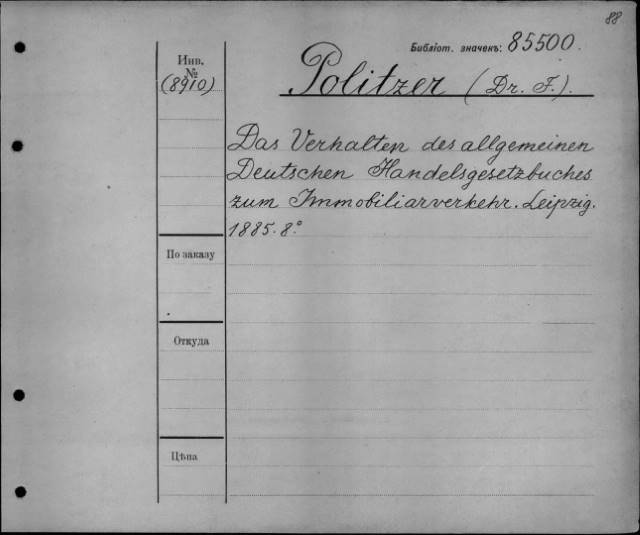 88
Библіот. значекъ: 85500.
Инв.
№
(8910)
Politzer (Dr. F.).
Das Verhalten des allgemeinen
Deutschen Handelsgesetzbuches
zum Immobiliarverkehr. Leipzig.
1885. 8°
По заказу
Откуда
Цѣна